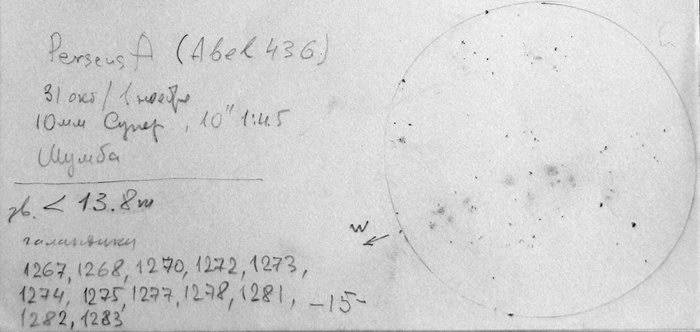 Perseus A (Abel 436)
31 окт / 1 ноября
10мм Супер, 10" 1:4.5
Шумба
зв. < 13.8m
галактики
W
1267, 1268, 1270, 1272, 1273,
1274, 1275, 1277, 1278, 1281, -15-
1282, 1283